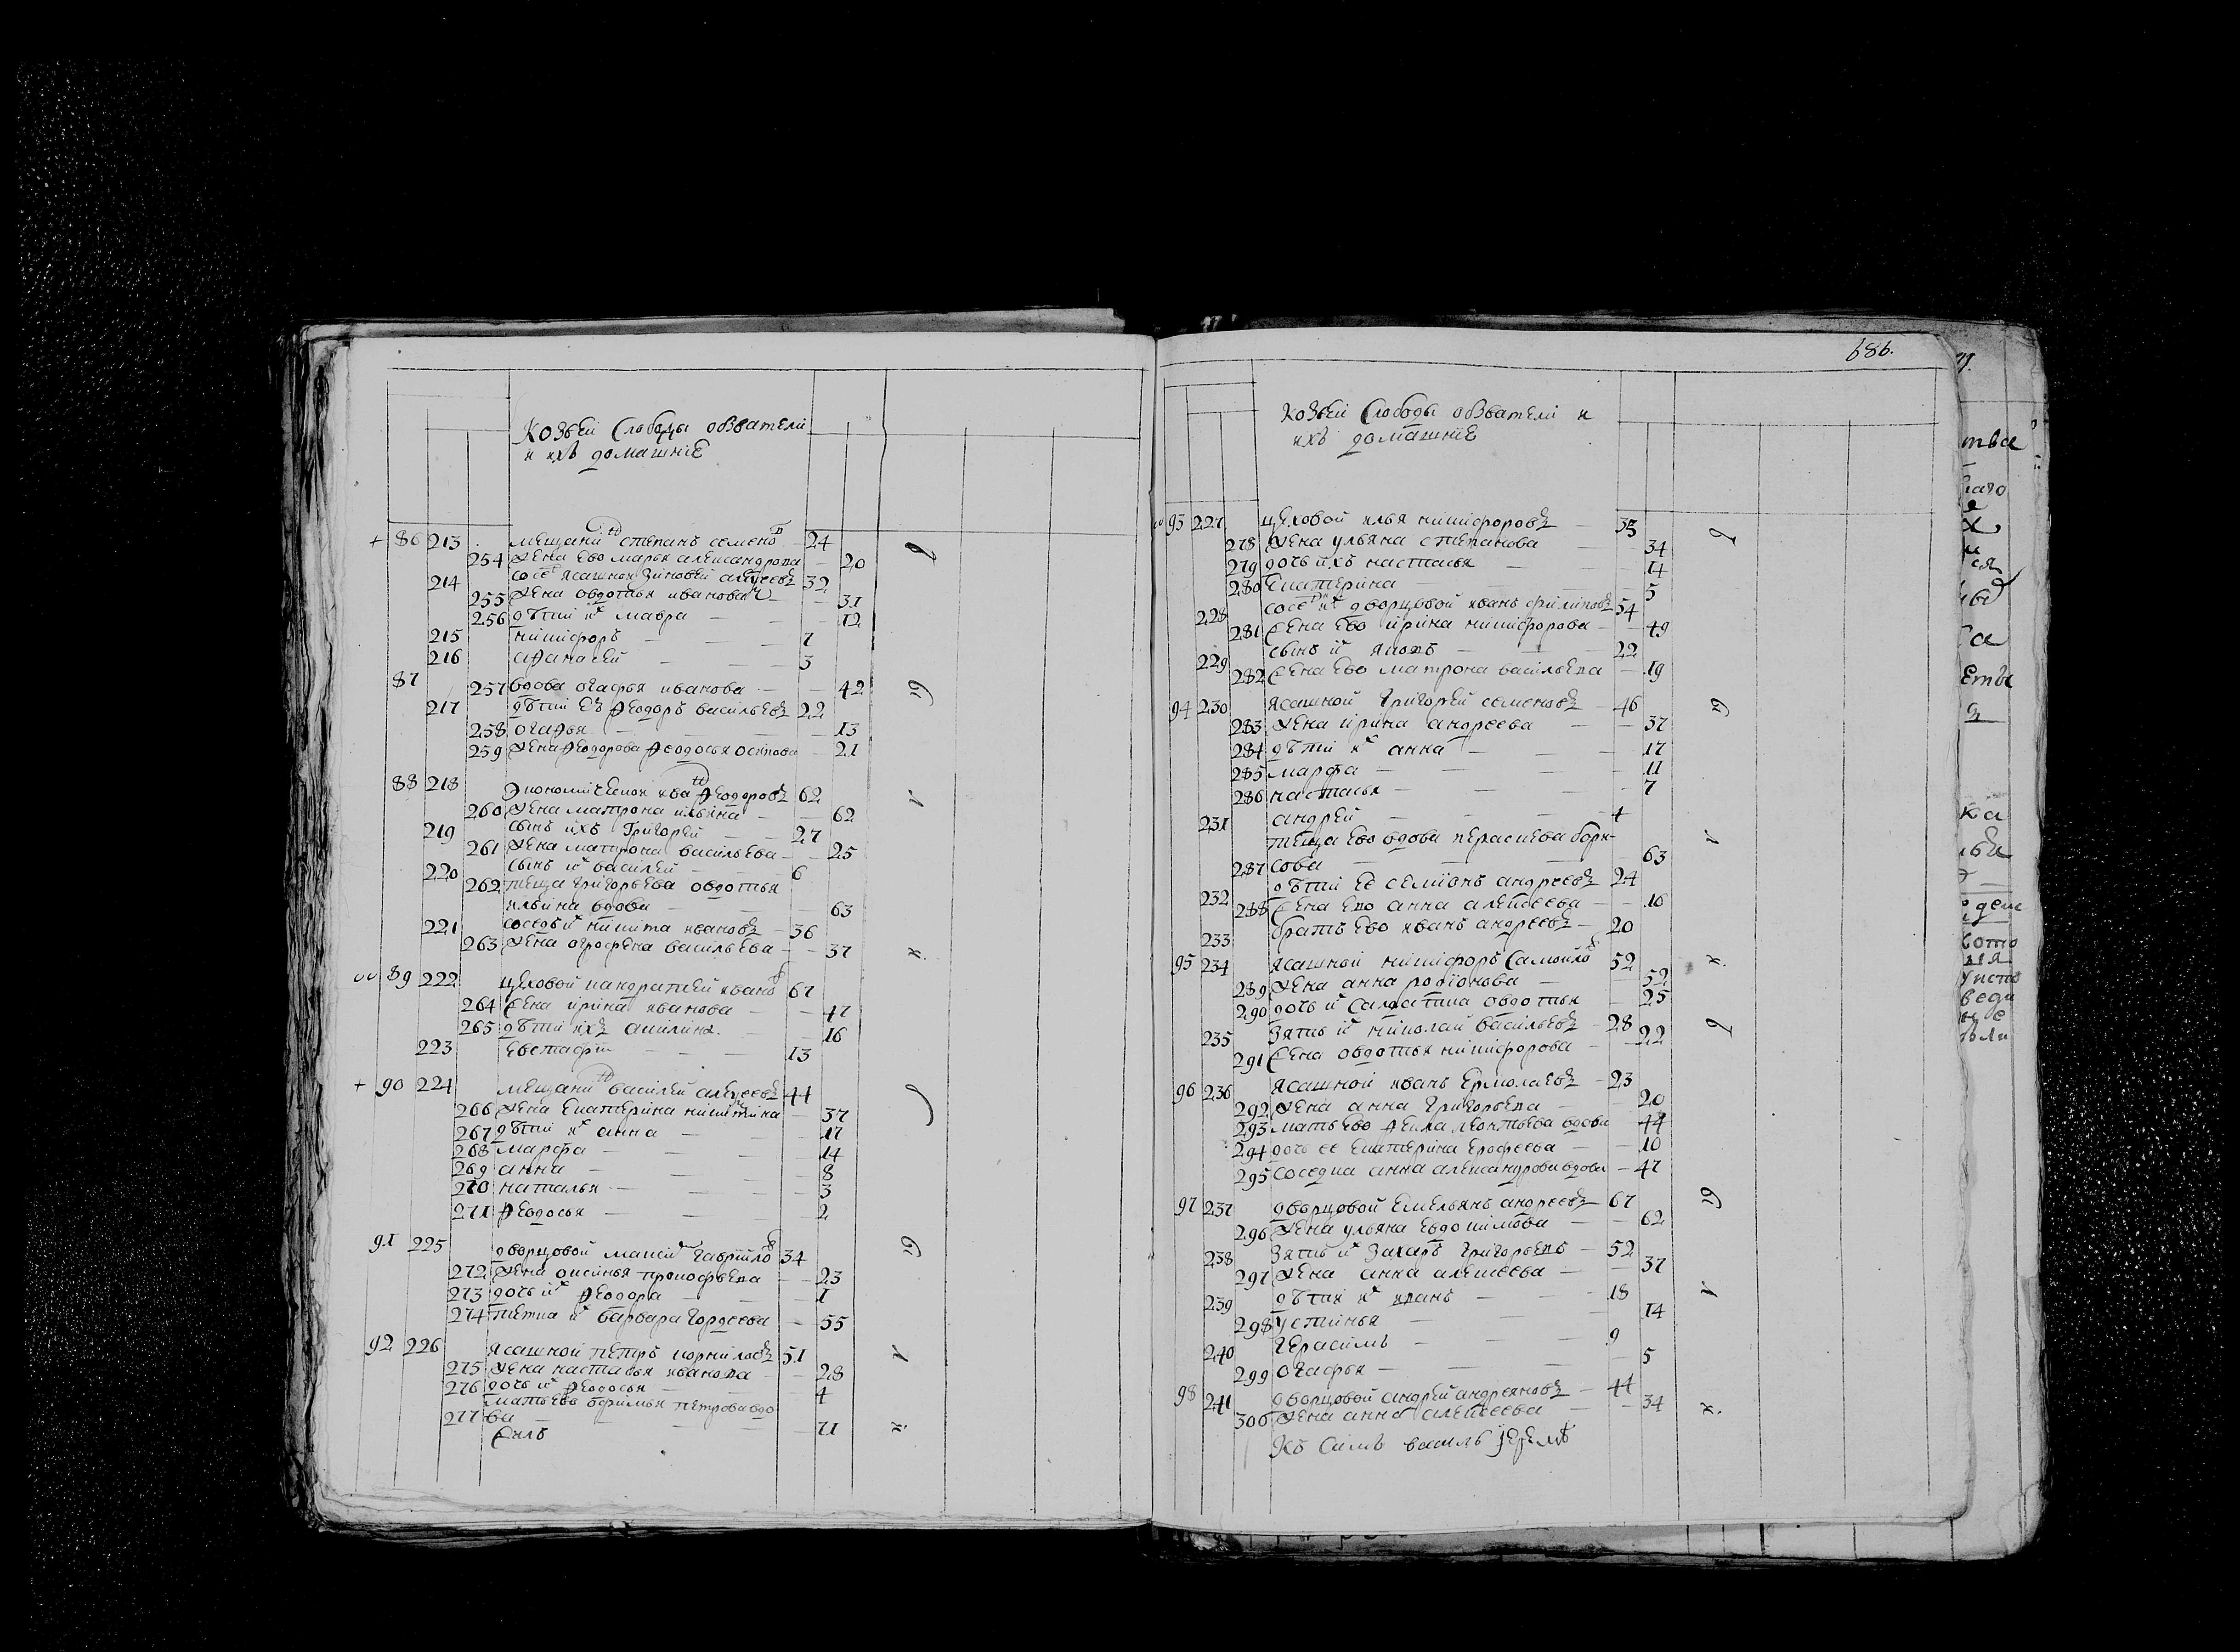 Козьей Слободы обзватели
и ихъ домашнiе
+ 86 213 мещанинъ степанъ семеновъ 24
254 жена ево марья александрова 20
214 сосед ясашнои зиновей алексеевъ 32
255 жена овдотья иванова 31
256 дѣти их мавра 12
215 никифоръ 7
216 афанасей 3
87 257 вдова огафья иванова 42
217 дѣти еѣ феодоръ васильевъ 22
258 огафья 13
259 жена феодорова феодосья осипова 21
88 218 экономическои иванъ феодоровъ 62
260 жена матрона ильина 62
219 сынъ ихъ григорей 27
261 жена матрона васильева 25
220 сынъ их василей 6
262 теща григорьева овдотья
ильина вдова 63
221 соседъ их никита ивановъ 36
263 жена огрофена васильева 37
89 222 цеховой кандратей ивановъ 67
264 жена ирина иванова 47
265 дѣти ихъ акилина 16
223 евстафiи 13
+ 90 224 мещанинъ василей алексеевъ 44
266 жена екатерина никитина 37
267 дѣти их анна 17
268 марфа 14
269 анна 8
270 наталья 3
271 феодосья 2
91 225 дворцовой максим гаврилов 34
272 жена оксинья прокофьева 23
273 дочь их феодора 1
274 тетка их варвара гордеева 55
92 226 ясашной петръ корниловъ 51
275 жена настасья иванова 28
276 дочь их феодосья 4
мать ево ефимья петрова вдо
277 ва 71
силъ
686.
Козьей Слободы обзватели и
ихъ домашнiе
93 227 цеховой илья никифоровъ 35
278 жена ульяна степанова 34
279 дочь ихъ настасья 14
280 екатерина 5
228 сосед их дворцовой иванъ филиповъ 54
281 жена ево ирина никифорова 49
229 сынъ их яковъ 22
282 жена ево матрона васильева 19
94 230 ясашной григорей семеновъ 46
283 жена ирина андреева 37
284 дѣти их анна 17
285 марфа 11
286 настасья 7
231 андрей 4
теща ево вдова бори-
287 сова 63
232 дѣти ее семiонъ андреевъ 24
288 жена ево анна алексеева 18
233 братъ ево иванъ андреевъ 20
95 234 ясашной никифоръ самойлов 52
289 жена анна родiонова 52
290 дочь их салдатка овдотья 25
235 зять их николай васильевъ 28
291 жена овдотья никифорова 22
96 236 ясашной иванъ ермолаевъ 23
292 жена анна григорьева 20
293 мать ево фекла леонтьева вдова 44
294 дочь ее екатерина ерофеева 10
295 соседка анна александрова вдова 47
97 237 дворцовой емельянъ андреевъ 67
296 жена ульяна евдокимова 62
238 зять их захаръ григорьевъ 52
297 жена анна алексеева 37
239 дѣти их иванъ 18
298 устинья 14
240 герасимъ 9
299 огафья 5
98 241 дворцовой андрей андреяновъ 44
300 жена анна алексеева 34
Къ симъ